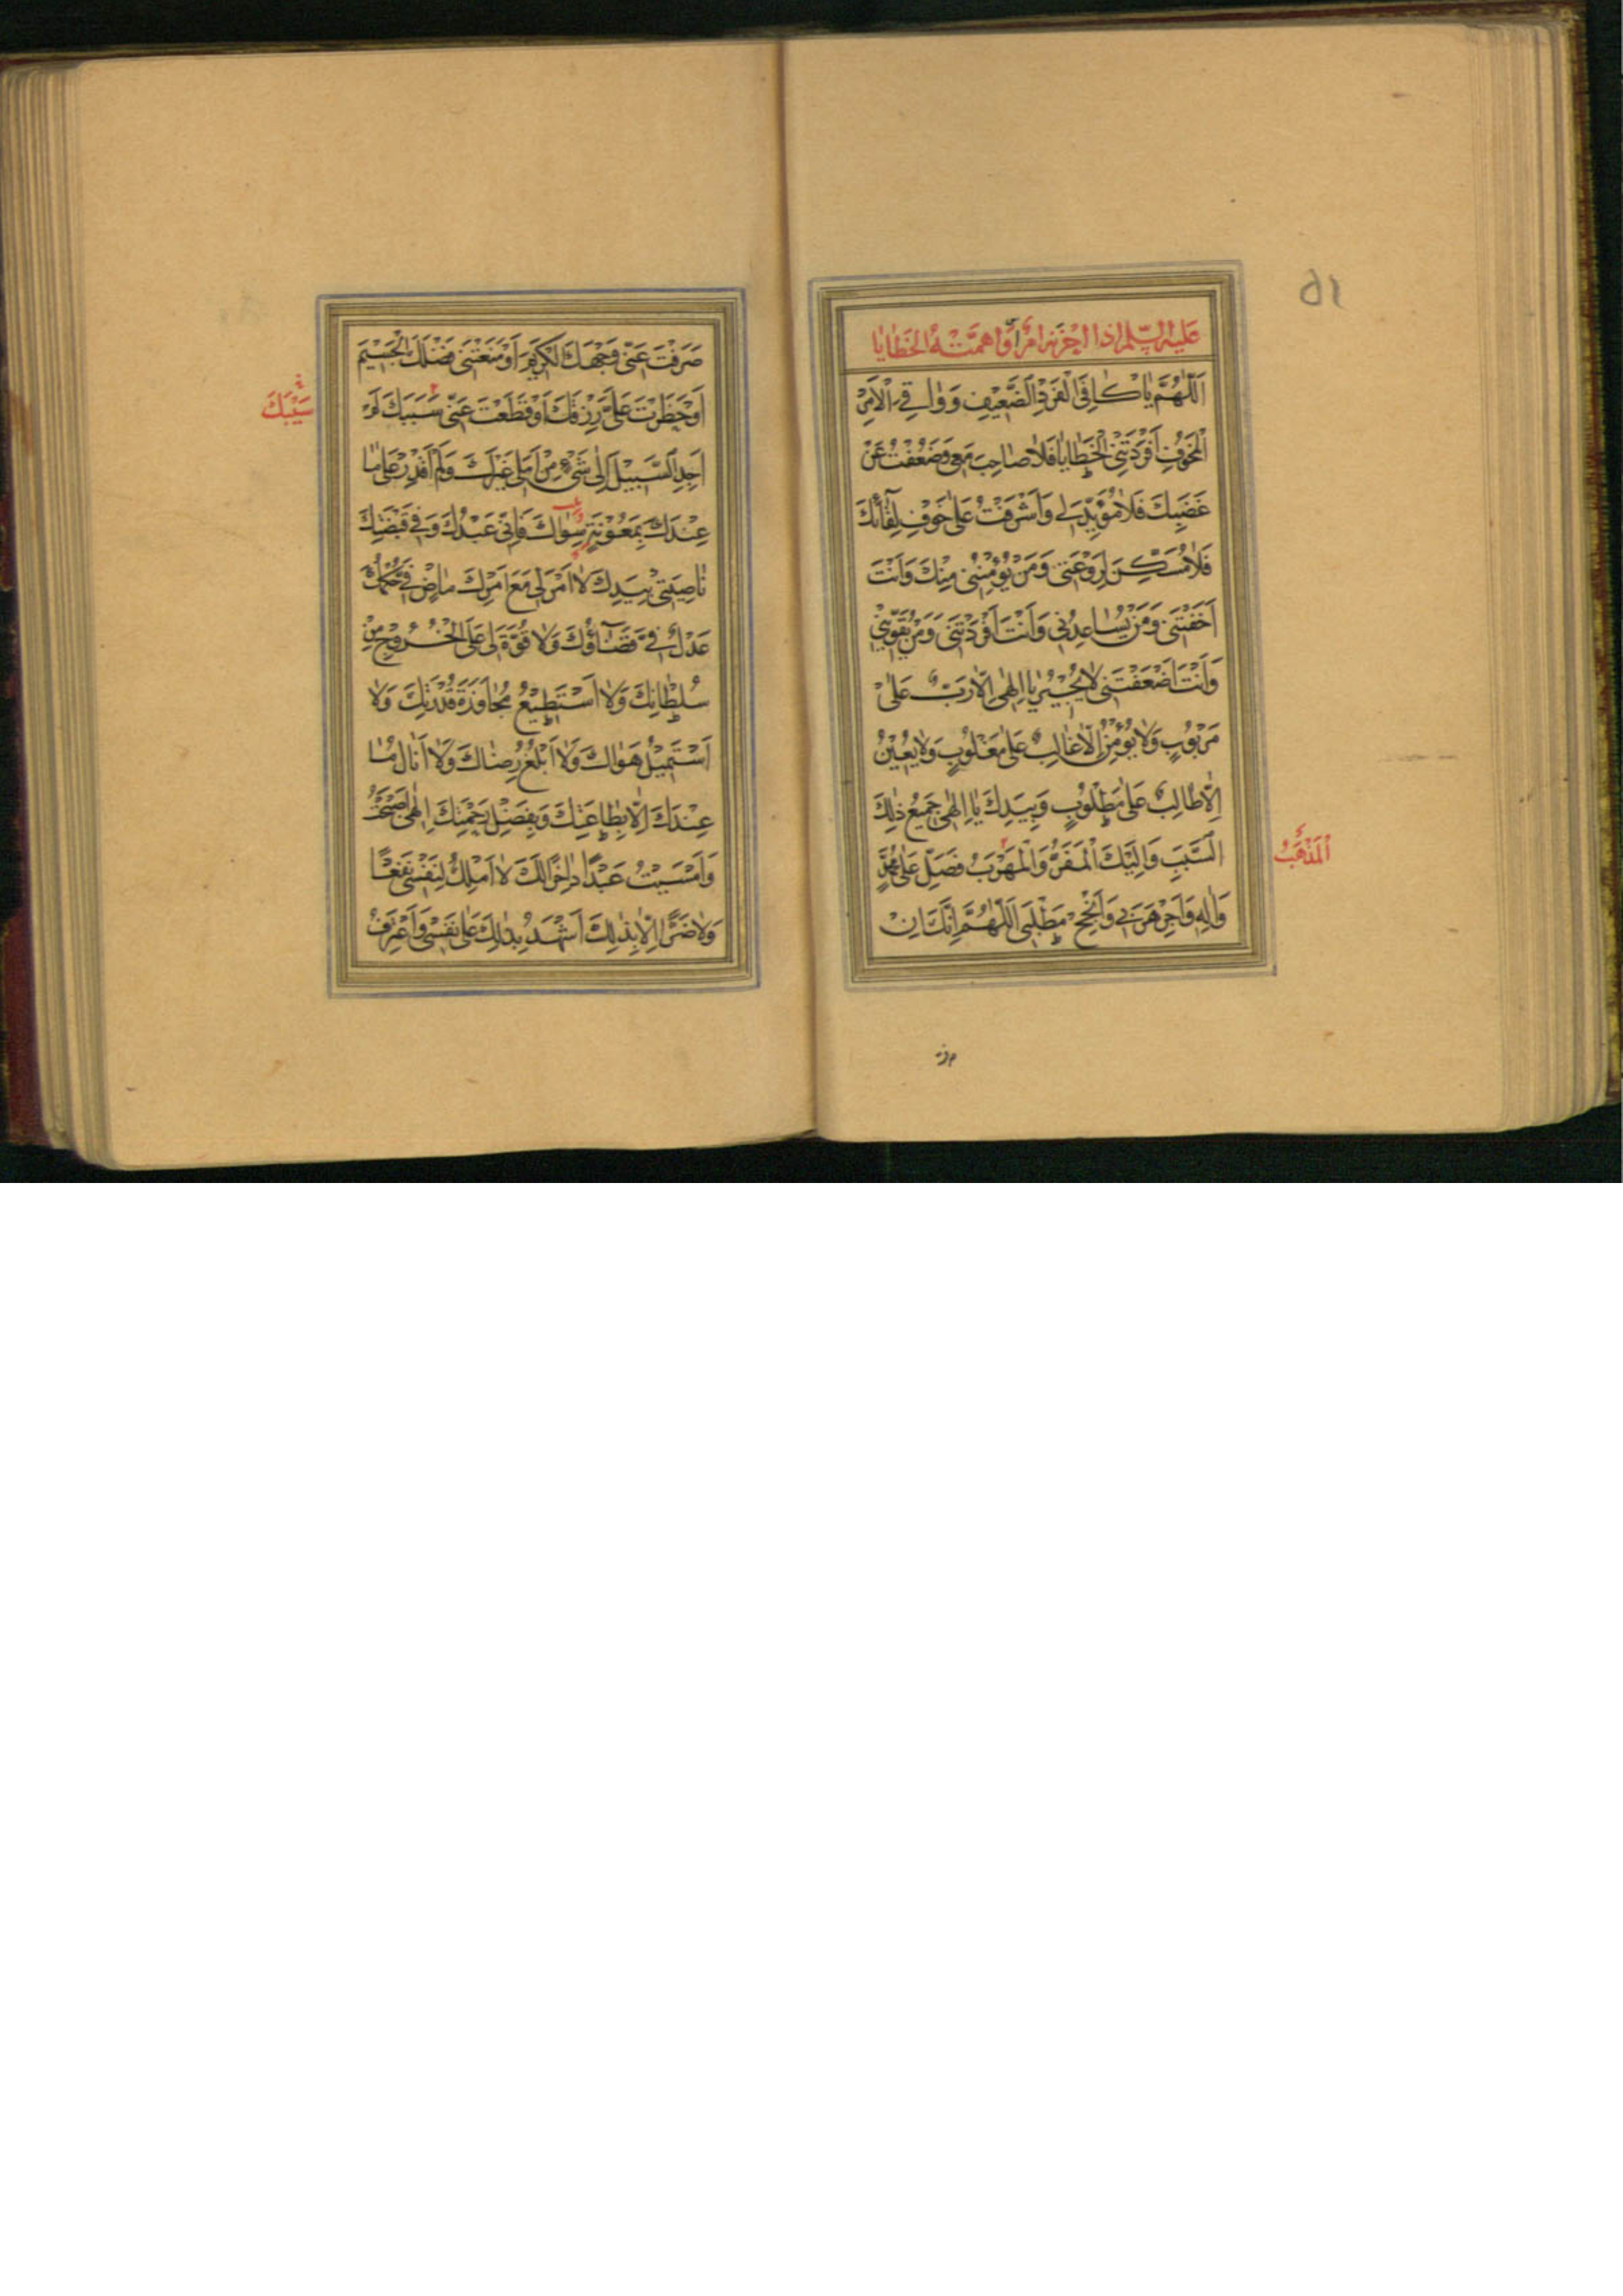 عَلَيْهِ السَّلَمُ اِذا اَحْزَنَهُ اَمْرٌ اَوْ اَهَمَّتْهُ الْخَطٰايٰا
اَللّٰهُمَّ يٰا كٰافِىَ الْفَرْدِ الضَّعِيْفِ وَ وٰاقِىَ الْاَمْرِ
الْمَخُوْفِ اَفْرَدَتْنِىْ الْخَطٰايٰا فَلاٰ صٰاحِبَ مَعِىْ وَضَعُفْتُ عَنْ
غَضَبِكَ فَلاٰ مُؤَيِّدَ لِىْ وَاَشْرَفْتُ عَلىٰ خَوْفِ لِقٰآئِكَ
فَلاٰ مُسَكِّنَ لِرَوْعَتىْ وَمَنْ يُؤْمِنُنِىْ مِنْكَ وَاَنْتَ
اَخَفْتَنِىْ وَمَنْ يُسٰاعِدُنِىْ وَاَنْتَ اَفْرَدْتَنِىْ وَمَنْ يُقَوِّيْنِىْ
وَاَنْتَ اَضْعَفْتَنِىْ لاٰ يُجِيْرُ يٰا اِلٰهِىْ اِلاّٰ رَبٌّ عَلىٰ
مَرْبُوْبٍ وَلاٰ يُؤْمِنُ اِلاّٰ غٰالِبٌ عَلىٰ مَغْلُوْبٍ وَلاٰ يُعِيْنُ
اِلاّٰ طٰالِبٌ عَلىٰ مَطْلُوْبٍ وَبِيَدِكَ يٰا اِلٰهِىْ جَمِيْعُ ذٰلِكَ
السَّبَبِ وَاِلَيْكَ الْمَفَرُّ وَالْمَهْرَبُ فَصَلِّ عَلىٰ مُحَمَّدٍ
وَاٰلِهِ وَاَجِرْ هَرَبِىْ وَاَنْجِحْ مَطْلَبِىْ اَللّٰهُمَّ اِنَّكَ اِنْ
اَلْمَذْهَبُ
٥١
صَرَفْتَ عَنِّىْ وَجْهَكَ الْكَرِيْمَ اَوْ مَنَعْتَنِىْ فَضْلَكَ الْجَسِيْمَ
اَوْ حَظَرْتَ عَلَىَّ رِزْقَكَ اَوْ قَطَعْتَ عَنِّىْ سَبَبَكَ لَمْ
اَجِدِ السَّبِيْلَ اِلىٰ شَىْءٍ مِنْ اَمَلِىْ غَيْرَكَ وَلَمْ اَقْدِرْ عَلىٰ مٰا
عِنْدَكَ بِمَعُوْنَةِ سِوٰاكَ فَاِنِّىْ عَبْدُكَ وَفِىْ قَبْضَتِكَ
نٰاصِيَتِىْ بِيَدِكَ لاٰ اَمْرَ لِىْ مَعَ اَمْرِكَ مٰاضٍ فِىَّ حُكْمُكَ
عَدْلٌ فِىَّ قَضٰآؤُكَ وَلاٰ قُوَّةَ لِىْ عَلَى الْخُرُوْجِ مِنْ
سُلْطٰانِكَ وَلاٰ اَسْتَطِيْعُ مُجٰاوَزَةَ قُدْرَتِكَ وَلاٰ
اَسْتَمِيْلُ هَوٰاكَ وَلاٰ اَبْلُغُ رِضٰاكَ وَلاٰ اَنٰالُ مٰا
عِنْدَكَ اِلاّٰ بِطٰاعَتِكَ وَبِفَضْلِ رَحْمَتِكَ اِلٰهِىْ اَصْبَحْتُ
وَاَمْسَيْتُ عَبْدًا دٰاخِرًا لَكَ لاٰ اَمْلِكُ لِنَفْسِىْ نَفْعًا
وَلاٰ ضَرًّا اِلاّٰ بِذٰلِكَ اَشْهَدُ بِذٰلِكَ عَلىٰ نَفْسِىْ وَاَعْتَرِفُ
سَيْبَكَ